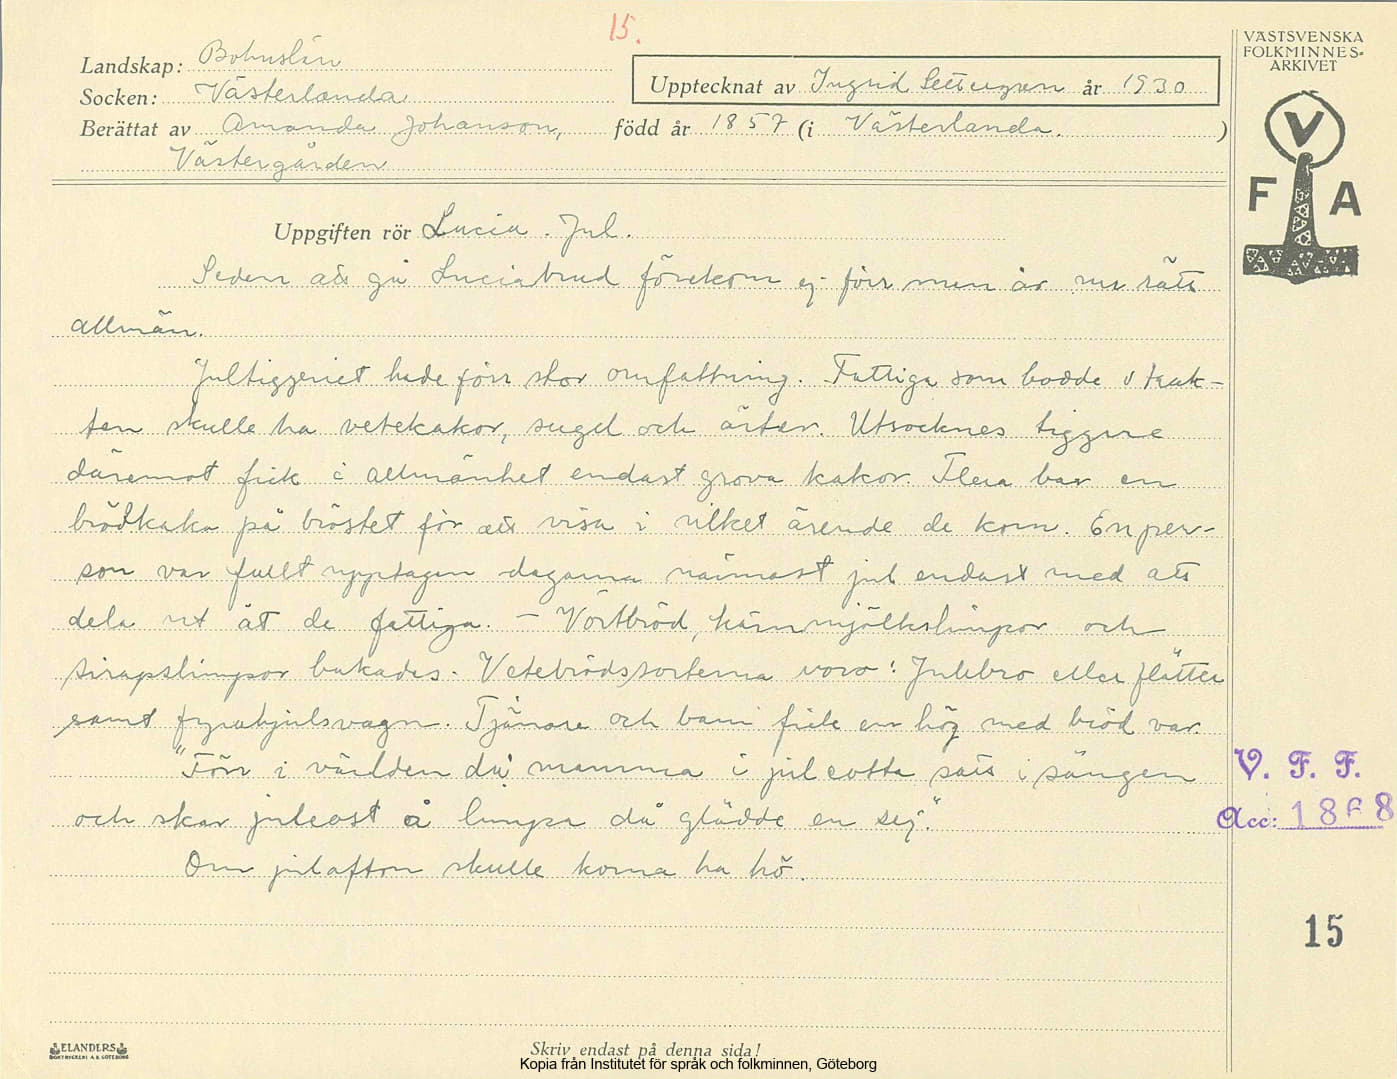 15.
VÄSTSVENSKA
FOLKMINNES-
ARKIVET
Landskap: Bohuslän
Socken: Västerlanda
Upptecknat av Ingrid Settergren år 1930
Berättat av Amanda Johanson, född år 1857 (i Västerlanda. )
Västergården
V
F A
Uppgiften rör Lucia. Jul.
Seden att gå Luciabrud förekom ej förr men är nu rätt
allmän.
Jultiggeriet hade förr stor omfattning. Fattiga som bodde i trak-
ten skulle ha vetekakor, sugel och ärter. Utsocknes tiggare
däremot fick i allmänhet endast grova kakor. Flera bar en
brödkaka på bröstet för att visa i vilket ärende de kom. En per-
son var fullt upptagen dagarna närmast jul endast med att
dela ut åt de fattiga. – Vörtbröd, kärnmjölkslimpor och
sirapslimpor bakades. Vetebrödssorterna voro: Julebro eller flätter
samt fyrahjulsvagn. Tjänare och barn fick en hög med bröd var.
"Förr i världen då mamma i jul cotta satt i sängen
och skar juleost å limpa då glädde en sej."
Om julafton skulle korna ha hö.
V. F. F.
Acc: 1868
15
ELANDERS
BOKTRYCKERI A.B. GÖTEBORG
Skriv endast på denna sida!
Kopia från Institutet för språk och folkminnen, Göteborg